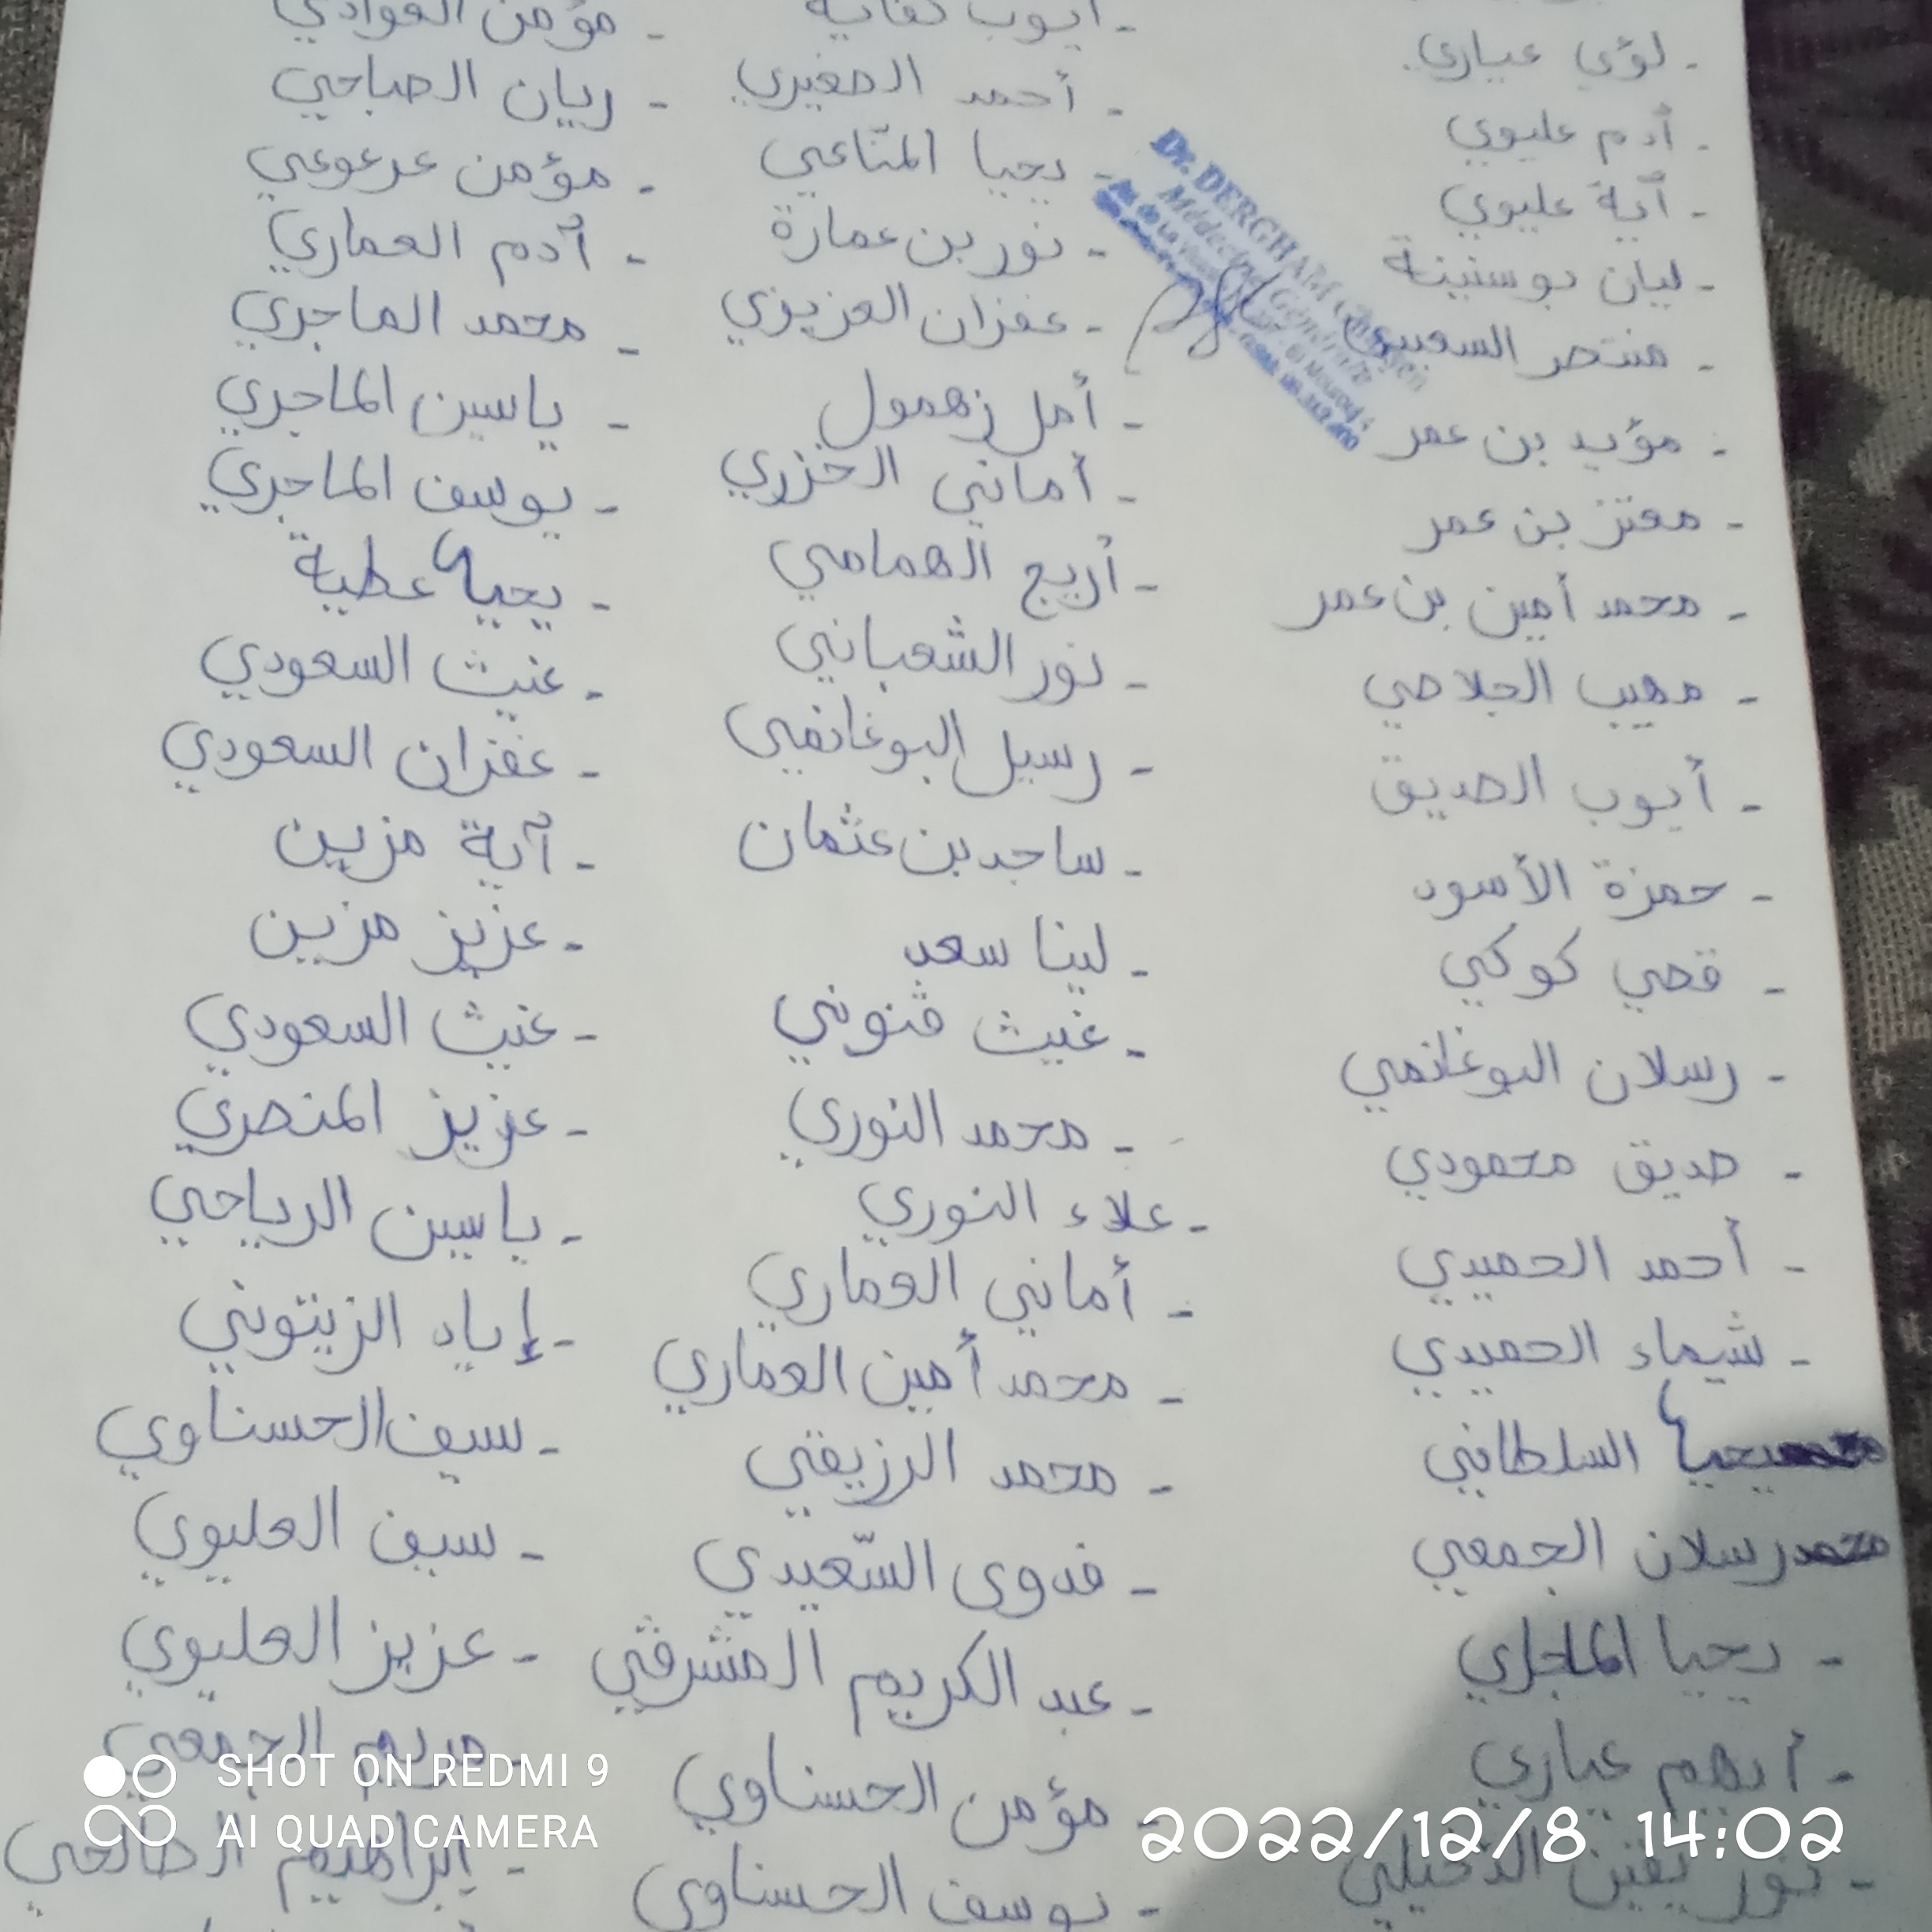 - لؤي عياري
- أدم عليوي
- آية عليوي
- ليان بوسنينة
- منتصر السعيدي
- مؤيد بن عمر
- معتز بن عمر
- محمد أمين بن عمر
- مهيب الجلاصي
- أيوب الصديق
- حمزة الأسود
- قصي كوكي
- رسلان البوغانمي
- صديق محمودي
- أحمد الحميدي
- شيماء الحميدي
يحيا السلطاني
رسلان الجمعي
- يحيا الماجري
- أدهم عياري
- نور يقين الدخيلي
- أيوب
- أحمد الصغيري
- يحيا المنّاعي
- نور بن عمارة
- غفران العزيزي
- أمل زهمول
- أماني الخزري
- أريج الهمامي
- نور الشعباني
- رسيل البوغانمي
- ساجد بن عثمان
- لينا سعد
- غيث ڨنوني
- محمد النوري
- علاء النوري
- أماني العماري
- محمد أمين العماري
- محمد الرزيقي
- فدوى السّعيدي
- عبد الكريم المشرقي
- مؤمن الحسناوي
- يوسف الحسناوي
- مؤمن العوادي
- ريان الصباحي
- مؤمن عرعوعي
- آدم العماري
- محمد الماجري
- ياسين الماجري
- يوسف الماجري
- يحيا عطية
- غيث السعودي
- غفران السعودي
- آية مزين
- عزيز مزين
- غيث السعودي
- عزيز المنصري
- ياسين الرياحي
- إياد الزيتوني
- سيف الحسناوي
- سيف العليوي
- عزيز العليوي
- مريم الجمعي
- إبراهيم الصالحي
Dr. DERGHAM
Médecine Générale
SHOT ON REDMI 9
AI QUAD CAMERA
2022/12/8 14:02